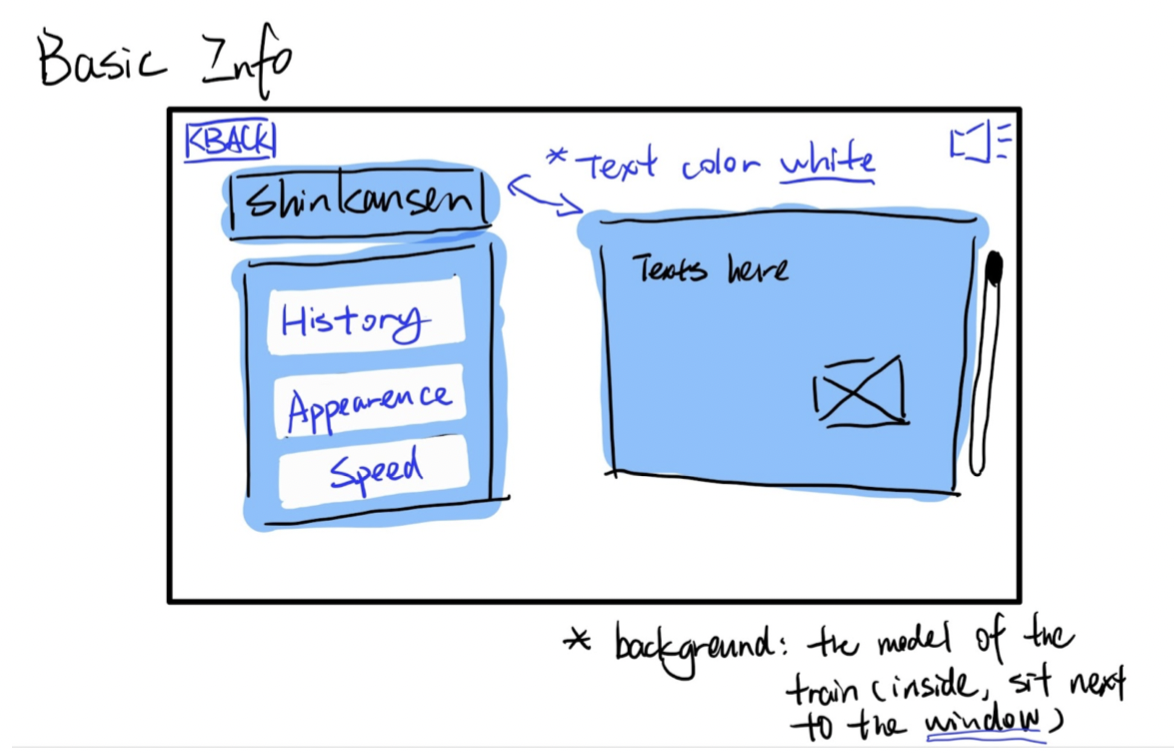 Basic Info
<BACK
* Text color white
Shinkansen
Texts here
History
Appearence
Speed
* background: the model of the
train (inside, sit next
to the window)